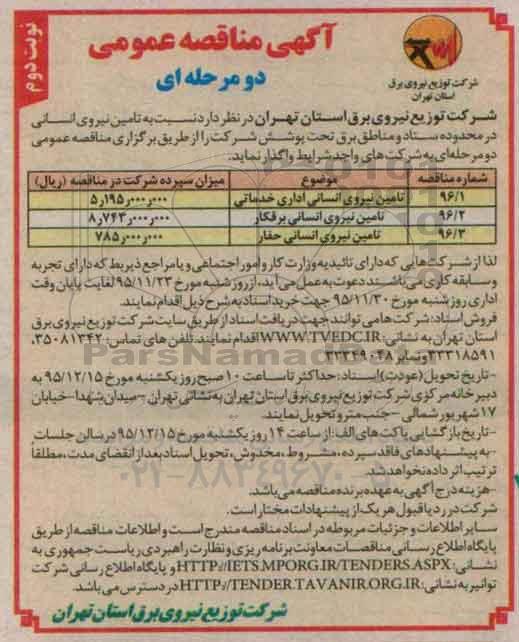 نوبت دوم
آگهی مناقصه عمومی
دو مرحله ای
شرکت توزیع نیروی برق
استان تهران
شرکت توزیع نیروی برق استان تهران در نظر دارد نسبت به تامین نیروی انسانی
در محدوده ستاد و مناطق برق تحت پوشش شرکت را از طریق برگزاری مناقصه عمومی
دو مرحله‌ای به شرکت های واجد شرایط واگذار نماید.
شماره مناقصه موضوع میزان سپرده شرکت در مناقصه (ریال)
۹۶/۱ تامین نیروی انسانی اداری خدماتی ۵ر۱۹۵ر۰۰۰ر۰۰۰
۹۶/۲ تامین نیروی انسانی برقکار ۸ر۷۴۳ر۰۰۰ر۰۰۰
۹۶/۳ تامین نیروی انسانی حفار ۷۸۵ر۰۰۰ر۰۰۰
لذا از شرکت هایی که دارای تائیدیه وزارت کار و امور اجتماعی و یا مراجع ذیربط که دارای تجربه
و سابقه کاری می باشند دعوت به عمل می آید، از روز شنبه مورخ ۹۵/۱۱/۲۳ لغایت پایان وقت
اداری روز شنبه مورخ ۹۵/۱۱/۳۰ جهت خرید اسناد به شرح ذیل اقدام نمایند.
فروش اسناد: شرکت ها می توانند جهت دریافت اسناد از طریق سایت شرکت توزیع نیروی برق
استان تهران به نشانی: WWW.TVEDC.IR اقدام نمایند. تلفن های تماس: ۳۵۰۸۱۳۴۲،
۳۳۳۱۸۵۹۱ و نمابر ۳۳۳۴۹۰۴۸
-تاریخ تحویل (عودت) اسناد: حداکثر تا ساعت ۱۰ صبح روز یکشنبه مورخ ۹۵/۱۲/۱۵ به
دبیرخانه مرکزی شرکت توزیع نیروی برق استان تهران به نشانی تهران - میدان شهدا - خیابان
۱۷ شهریور شمالی - جنب مترو تحویل نمایند.
-تاریخ بازگشایی پاکت های الف: از ساعت ۱۴ روز یکشنبه مورخ ۹۵/۱۲/۱۵ در سالن جلسات
-به پیشنهادهای فاقد سپرده، مشروط، مخدوش، تحویل اسناد بعد از انقضای مدت، مطلقا
ترتیب اثر داده نخواهد شد.
-هزینه درج آگهی به عهده برنده مناقصه می باشد.
شرکت در رد یا قبول هر یک از پیشنهادات مختار است.
سایر اطلاعات و جزئیات مربوطه در اسناد مناقصه مندرج است و اطلاعات مناقصه از طریق
پایگاه اطلاع رسانی مناقصات معاونت برنامه ریزی و نظارت راهبردی ریاست جمهوری به
نشانی: HTTP://IETS.MPORG.IR/TENDERS.ASPX و پایگاه اطلاع رسانی شرکت
توانیر به نشانی: HTTP://TENDER.TAVANIR.ORG.IR در دسترس می باشد.
شرکت توزیع نیروی برق استان تهران
ParsNamad